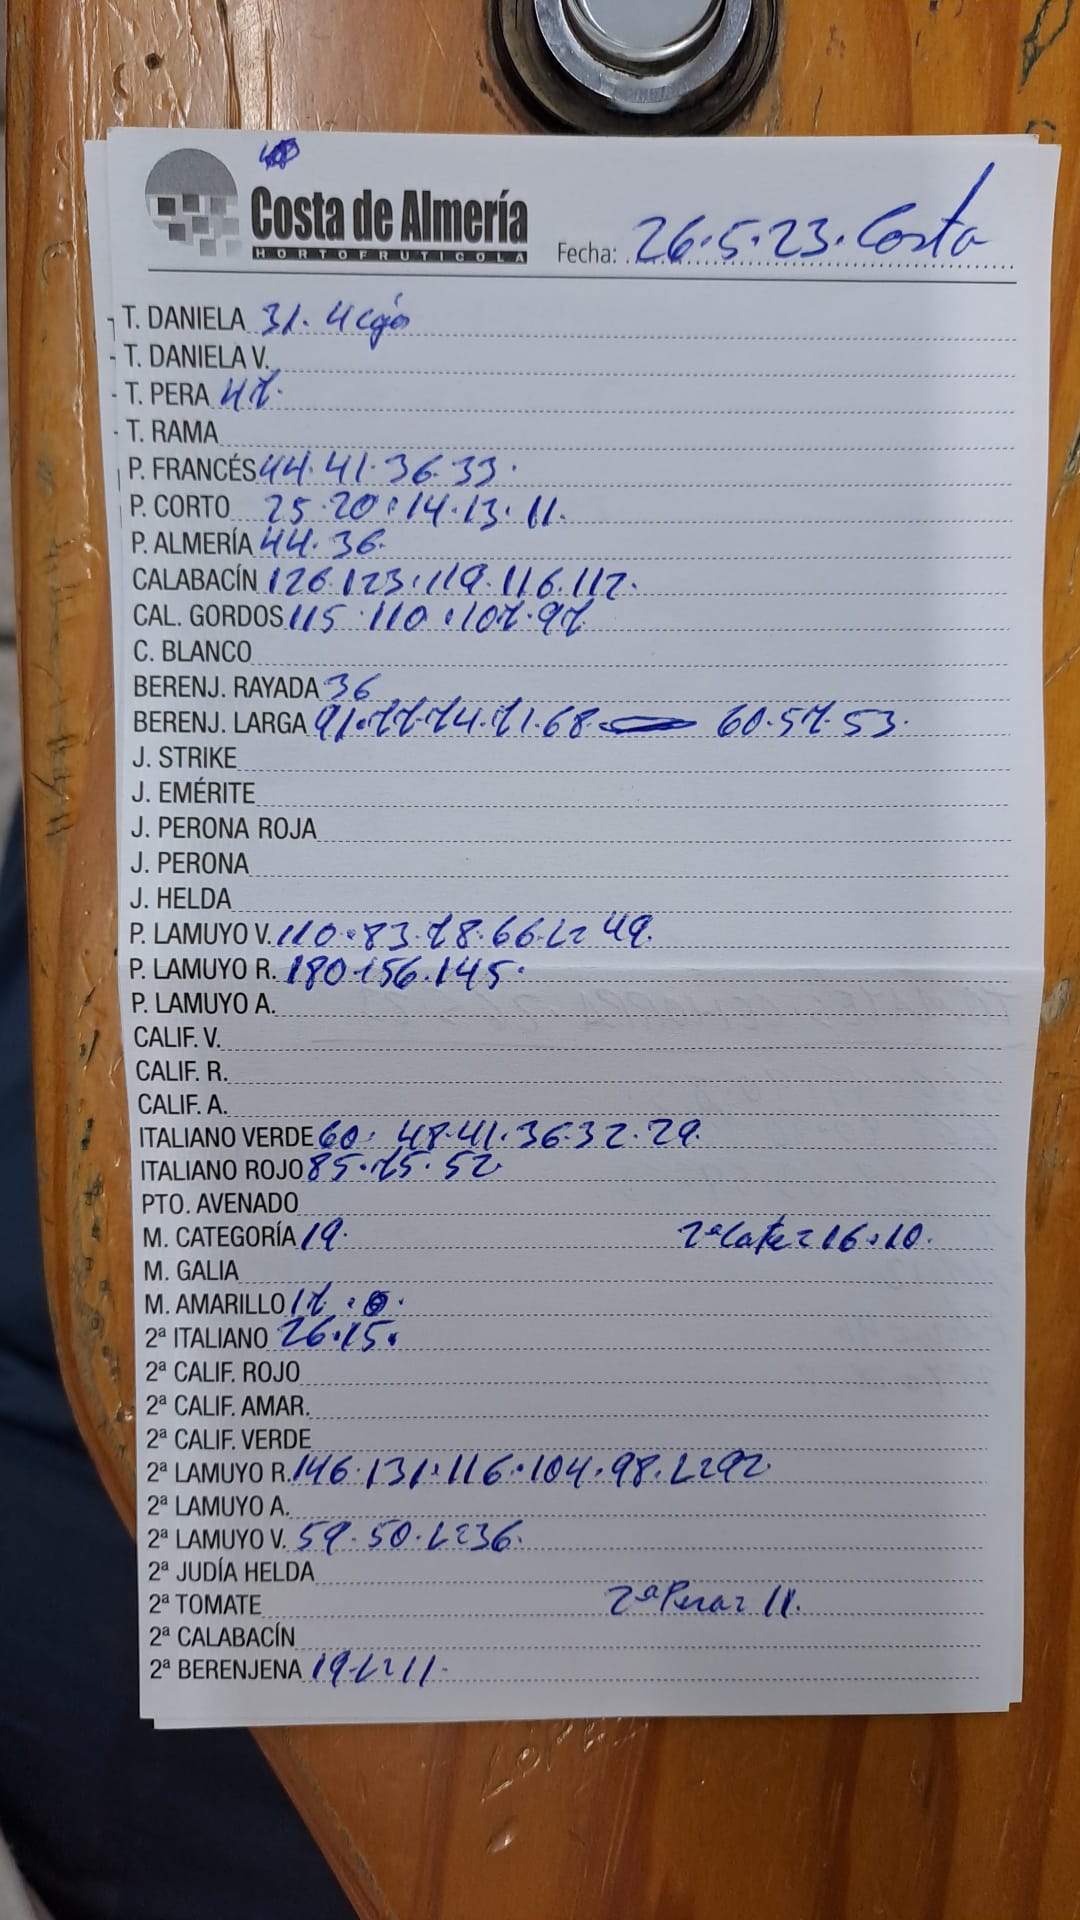 Costa de Almería
HORTOFRUTICOLA
Fecha: 26.5.23. Costa
T. DANIELA 31. 4 cgó
T. DANIELA V.
T. PERA 47.
T. RAMA
P. FRANCÉS 44.41.36.33.
P. CORTO 25.20.14.13.11.
P. ALMERÍA 44.36.
CALABACÍN 126.123.119.116.112.
CAL. GORDOS 115.110.107.97
C. BLANCO
BERENJ. RAYADA 36
BERENJ. LARGA 91.77.74.71.68. 60.57.53.
J. STRIKE
J. EMÉRITE
J. PERONA ROJA
J. PERONA
J. HELDA
P. LAMUYO V. 110.83.78.66.L=49.
P. LAMUYO R. 180.156.145.
P. LAMUYO A.
CALIF. V.
CALIF. R.
CALIF. A.
ITALIANO VERDE 60. 48.41.36.32.29.
ITALIANO ROJO 85.75.52
PTO. AVENADO
M. CATEGORÍA 19. 2ª Cate=16.10.
M. GALIA
M. AMARILLO 17.
2ª ITALIANO 26.15.
2ª CALIF. ROJO
2ª CALIF. AMAR.
2ª CALIF. VERDE
2ª LAMUYO R. 146.131.116.104.98.L=92
2ª LAMUYO A.
2ª LAMUYO V. 59.50.L=36.
2ª JUDÍA HELDA
2ª TOMATE 2ª Pera= 11.
2ª CALABACÍN
2ª BERENJENA 19.L=11.